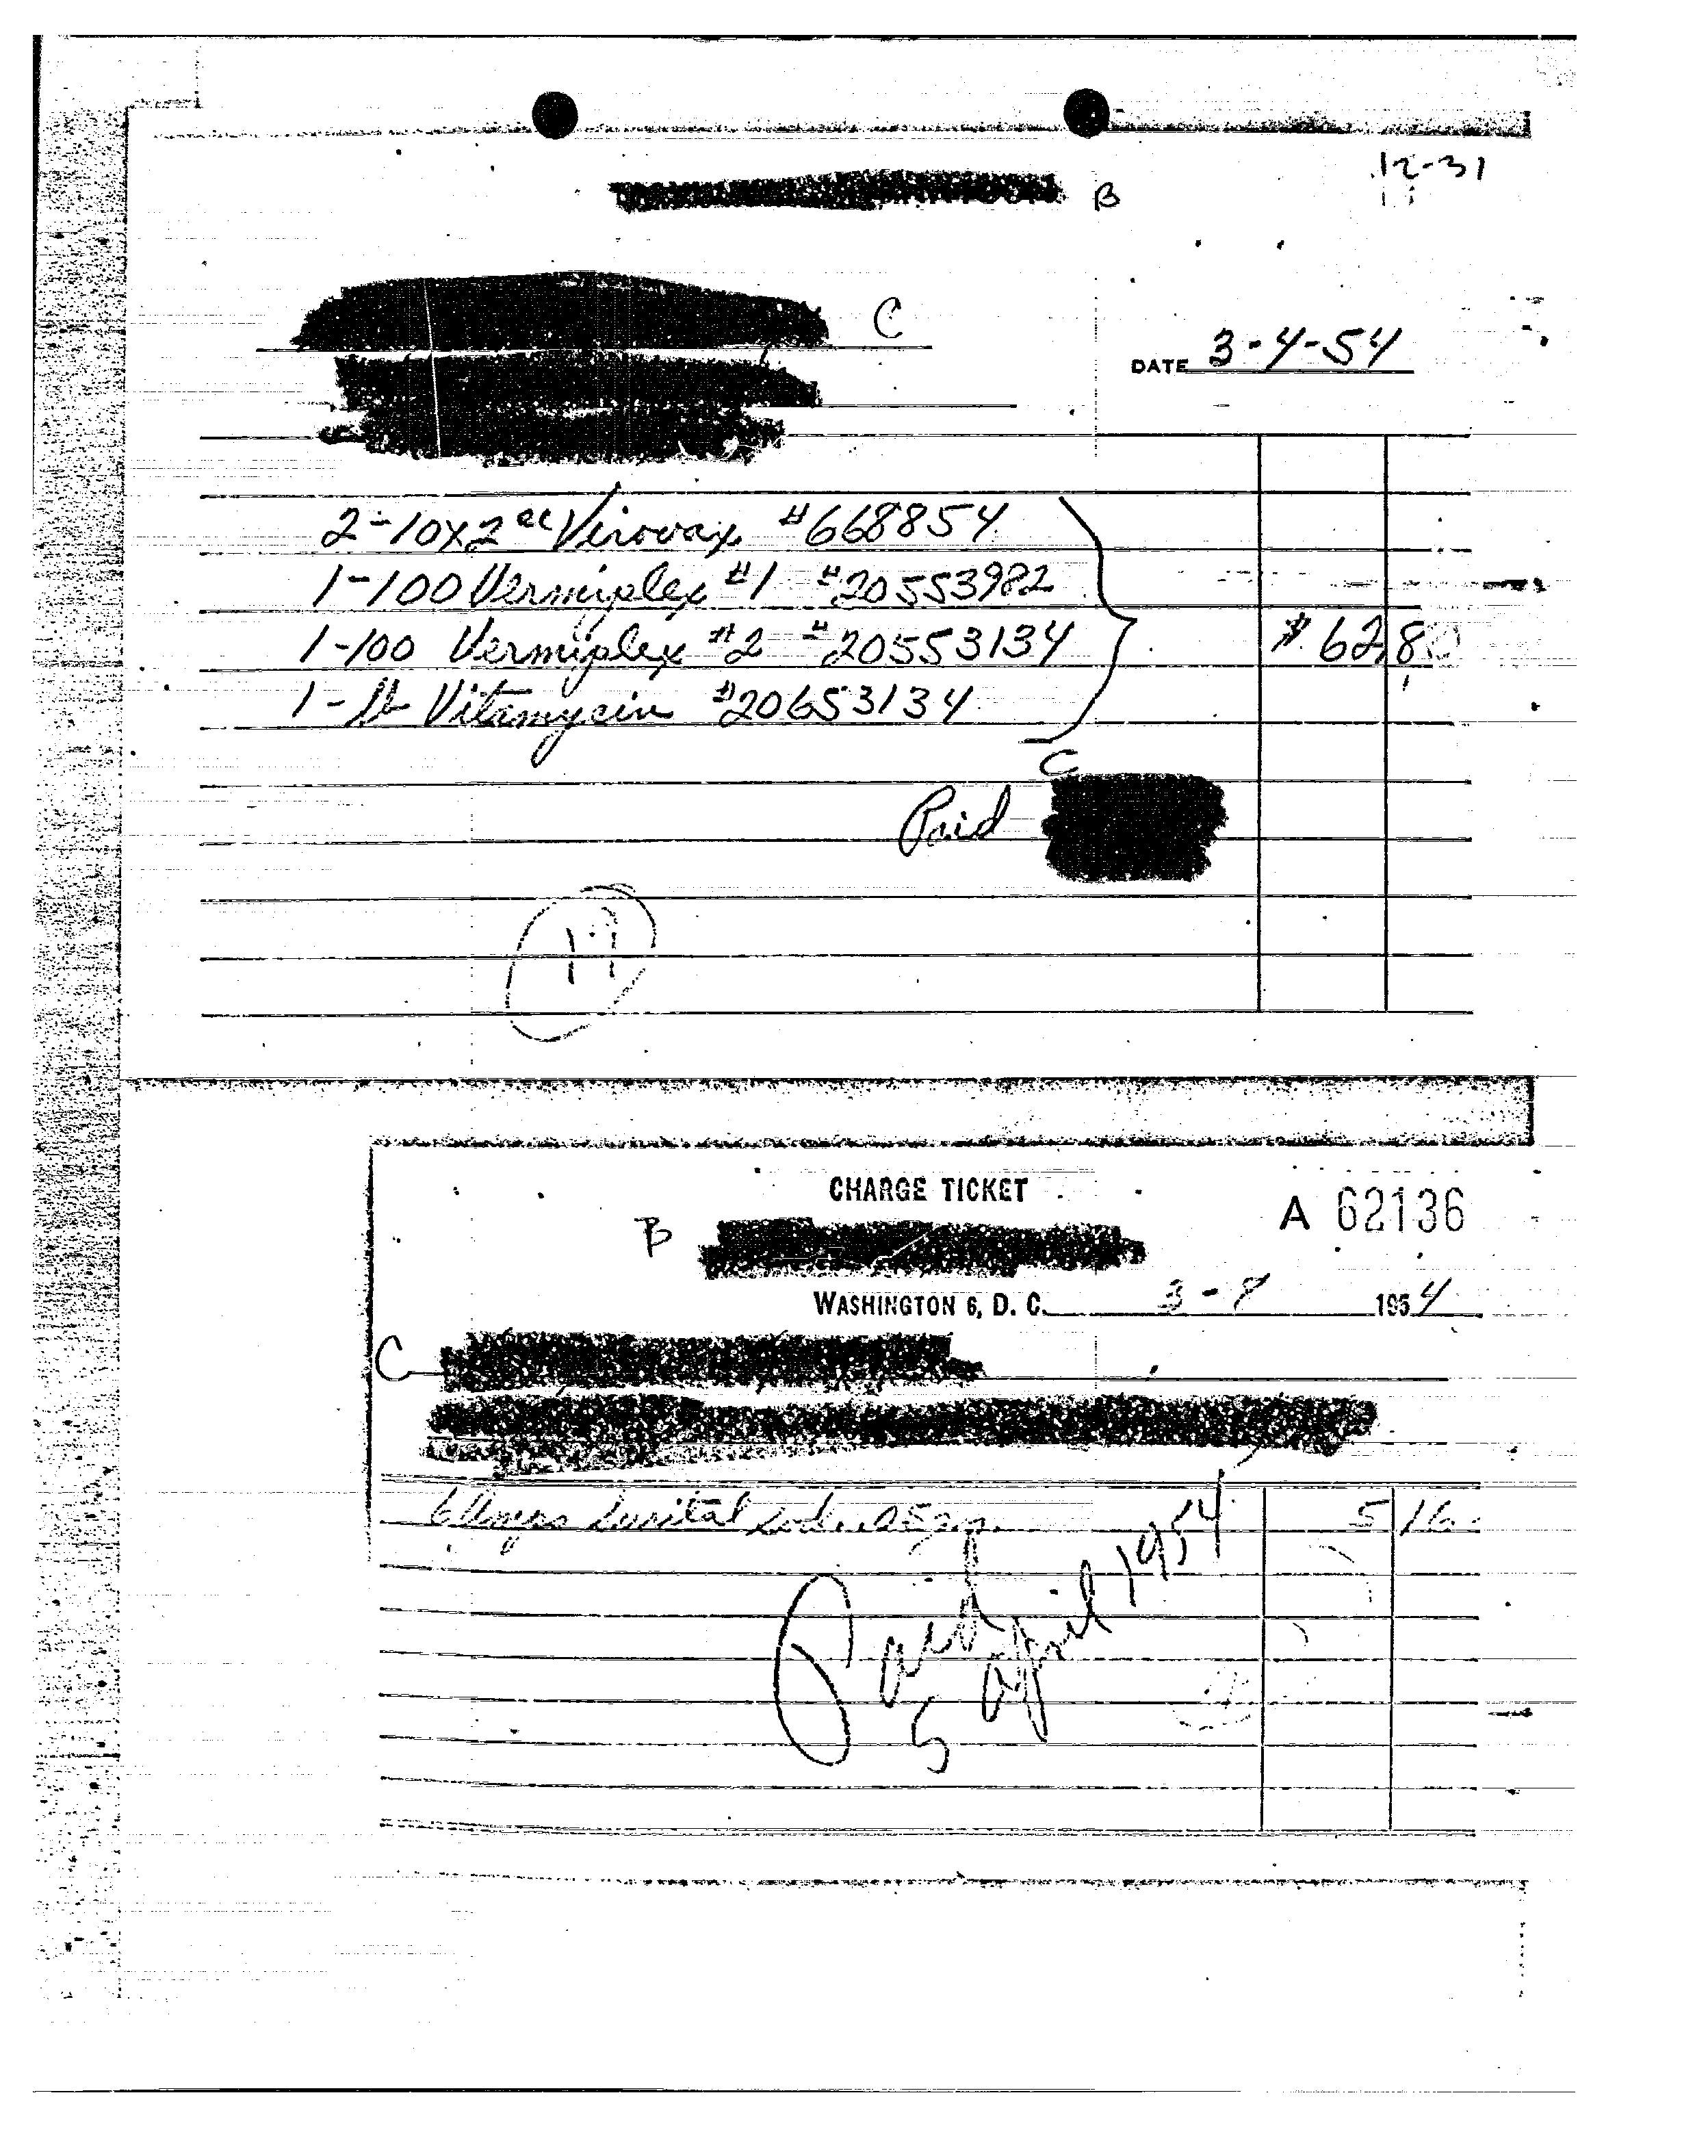 12-31
B
C
DATE 3-4-54
2-10x2cc Virovax #668854
1-100 Vermiplex #1 #20553982
1-100 Vermiplex #2 #20553134
$62.8
1-lb Vitamycin #20653134
C
Paid
CHARGE TICKET
A 62136
B
WASHINGTON 6, D. C. 3-8 1954
C
surital 5 16
Paid
5 April 1954